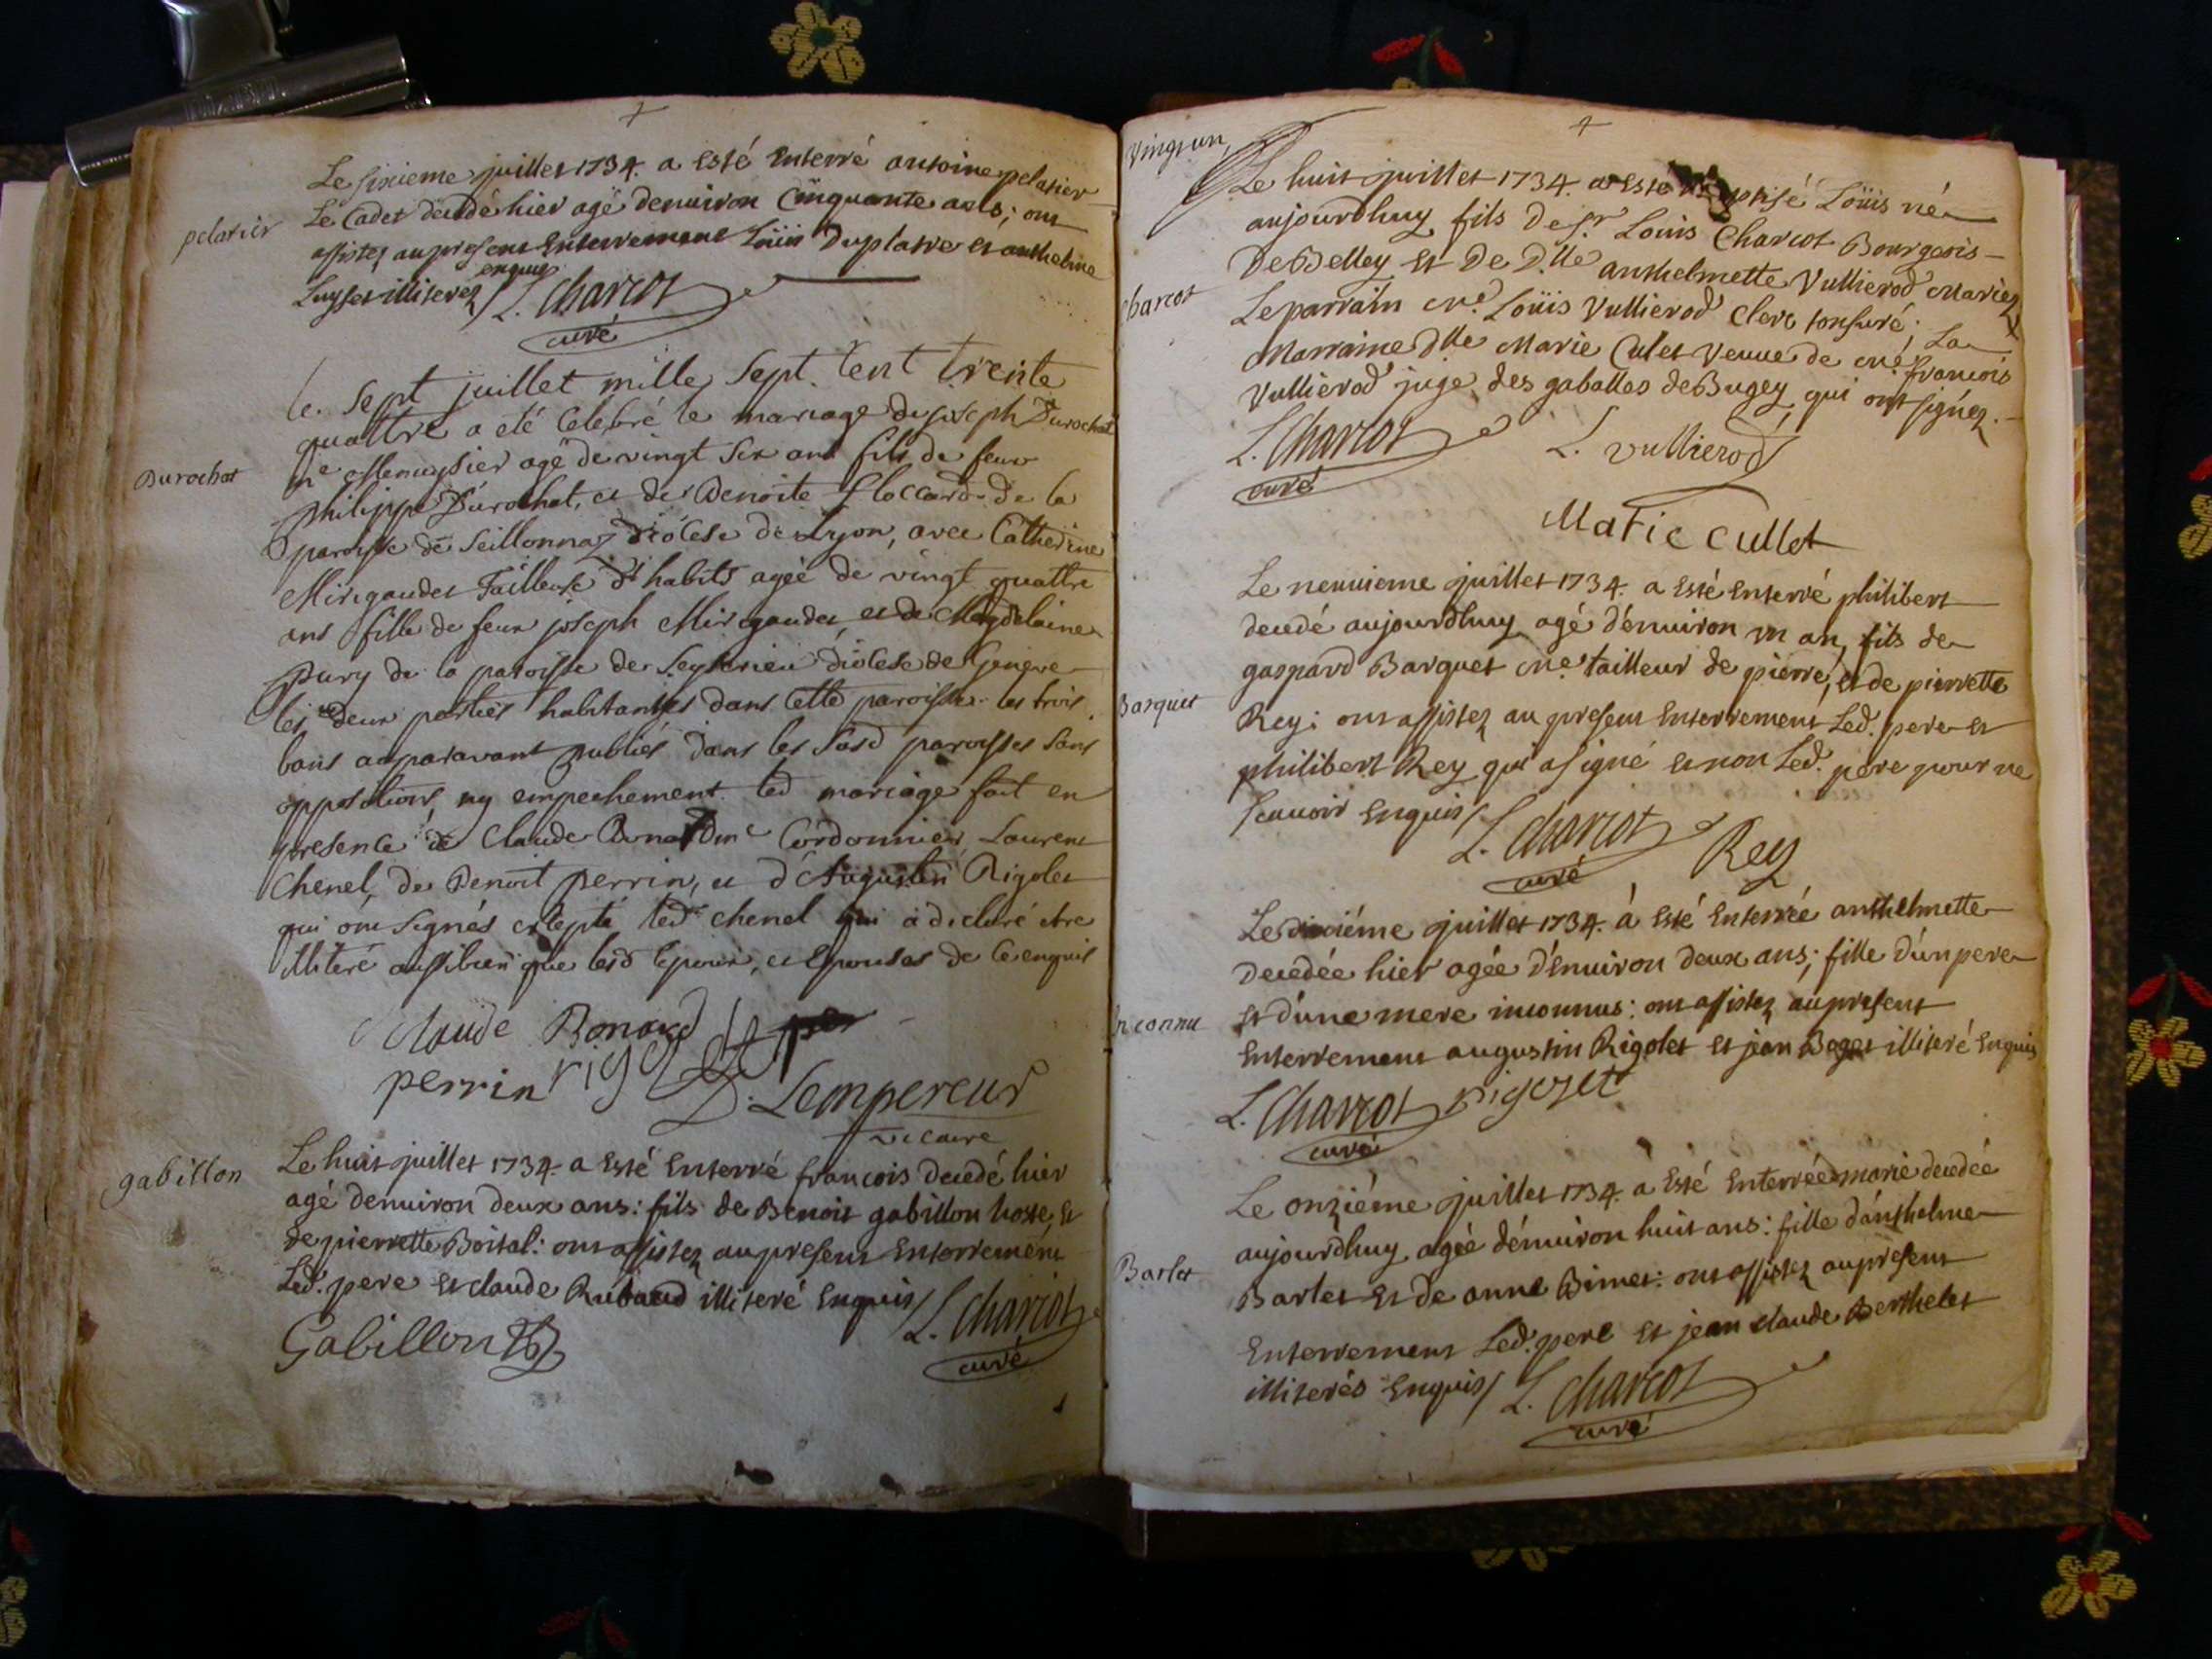 Le sixieme juillet 1734. a Esté Enterré antoine pelatier
pelatier
Le Cadet decedé hier agé denuiron Cinquante ans; ont
assistez au present Enterrement Loüis Duplatre et anthelme
Luyset illiterez enquis / L. Charcot
curé
Le Sept juillet mille Sept Cent trente
quattre a eté Celebré le mariage de joseph Durochat
Durochat
me Menuysier agé de vingt six ans fils de feu
philippe Durochat, et de Benoite Floccard de la
paroisse de Seillonnaz diocese de Lyon, avec Catherine
Mirigaudet Tailleuse d'habits agée de vingt quattre
ans fille de feu joseph Mirigaudet, et de Magdelaine
Pury de la paroisse de Seysserieu diocese de Geneve
les deux parties habitantes dans Cette paroisse les trois
bans auparavant publiés dans les Susd paroisses Sans
oppositions ny empechement led mariage fait en
presence de Claude Bonard me Cordonnier, Laurent
Chenel, de Benoit perrin, et d'Augustin Rigolet
qui ont Signés excepté led chenel qui a declaré etre
illiteré aussibien que lesd epoux, et Epouses de ce enquis
Claude Bonard
perrin rigolet
D. Lempereur
vicaire
gabillon
Le huit juillet 1734. a Esté Enterré francois decedé hier
agé denuiron deux ans: fils de Benoit gabillon hoste, Et
de pierrette Boital: ont assistez au present Enterrement
Led. pere Et claude Rubaud illiteré Enquis / L. Charcot
curé
Gabillon
Vingt un
Le huit juillet 1734. a Esté Baptisé Loüis né
aujourdhuy fils de Sr. Louis Charcot Bourgeois
De Belley Et De D.lle anthelmette Vullierod Mariez
charcot
Le parrain me. Loüis Vullierod Clerc tonsuré; La
Marraine dlle Marie Culet Veuue de me francois
Vullierod juge des gabelles de Bugey qui ont signez.
L. Charcot
curé
L. Vullierod
Marie Cullet
Le neuuieme juillet 1734. a Esté Enterré philibert
decedé aujourdhuy agé d'énuiron un an, fils de
gaspard Barquet me. tailleur de pierre, et de pierrette
Barquet
Rey: ont assistez au present Enterrement Led. pere Et
philibert Rey qui a signé Et non Led. pere pour ne
scauoir Enquis /
L. Charcot
curé
Rey
Le dixiéme juillet 1734. à Esté Enterrée anthelmette
Decedée hier agée d'énuiron deux ans; fille d'un pere
Inconnu
Et d'une mere inconnus: ont assistez au present
Enterrement augustin Rigolet Et jean Boget illiteré Enquis
L. Charcot
curé
rigolet
Le onziéme juillet 1734. a Esté Enterrée marie decedée
aujourdhuy agée d'énuiron huit ans: fille d'anthelme
Barlet
Barlet Et de anne Bimet: ont assistez au present
Enterrement Led. pere Et jean claude Berthelet
illiterés Enquis / L. Charcot
curé